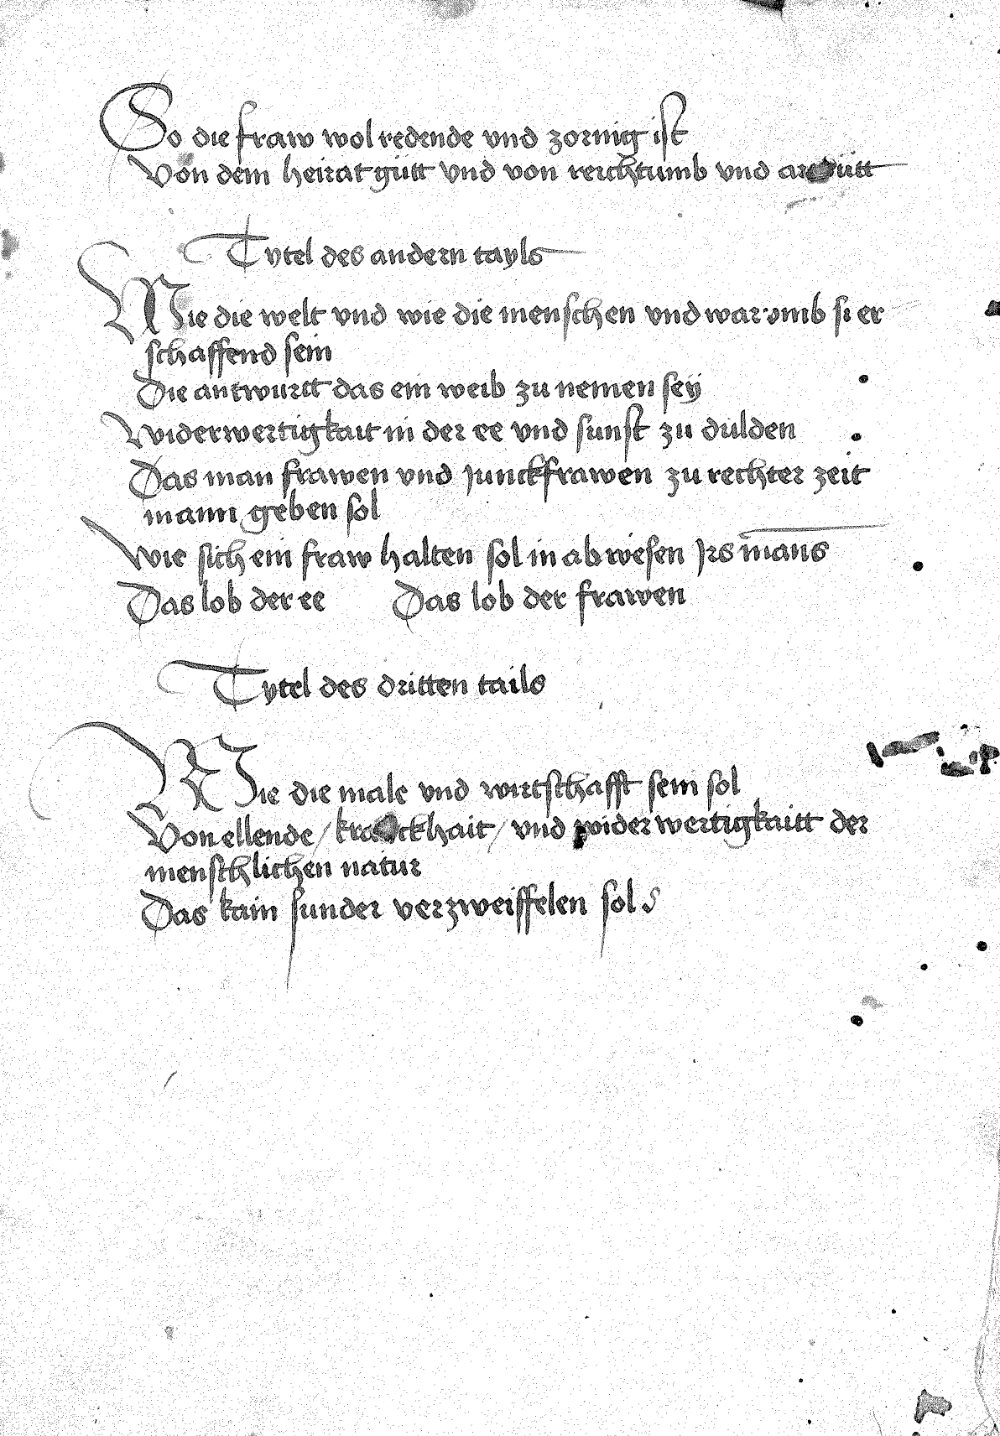 So die fraw wol redende vnd zornig ist
Von dem heirat gůtt vnd von reichtumb vnd
Tytel des andern tayls
Wie die welt vnd wie die menschen vnd warumb si er
schaffend sein
Die antwurtt das ein weib zu nemen sey
Widerwertigkait in der ee vnd sunst zu dulden
Das man frawen vnd junckfrawen zu rechter zeit
mann geben sol
Wie sich ein fraw halten sol in abwesen jrs mans
Das lob der ee Das lob der frawen
Tytel des dritten tails
Wie die male vnd wirtschafft sein sol
Von ellende / kranckhait / vnd widerwertigkaitt der
menschlichen natur
Das kain sunder verzweiffelen sol